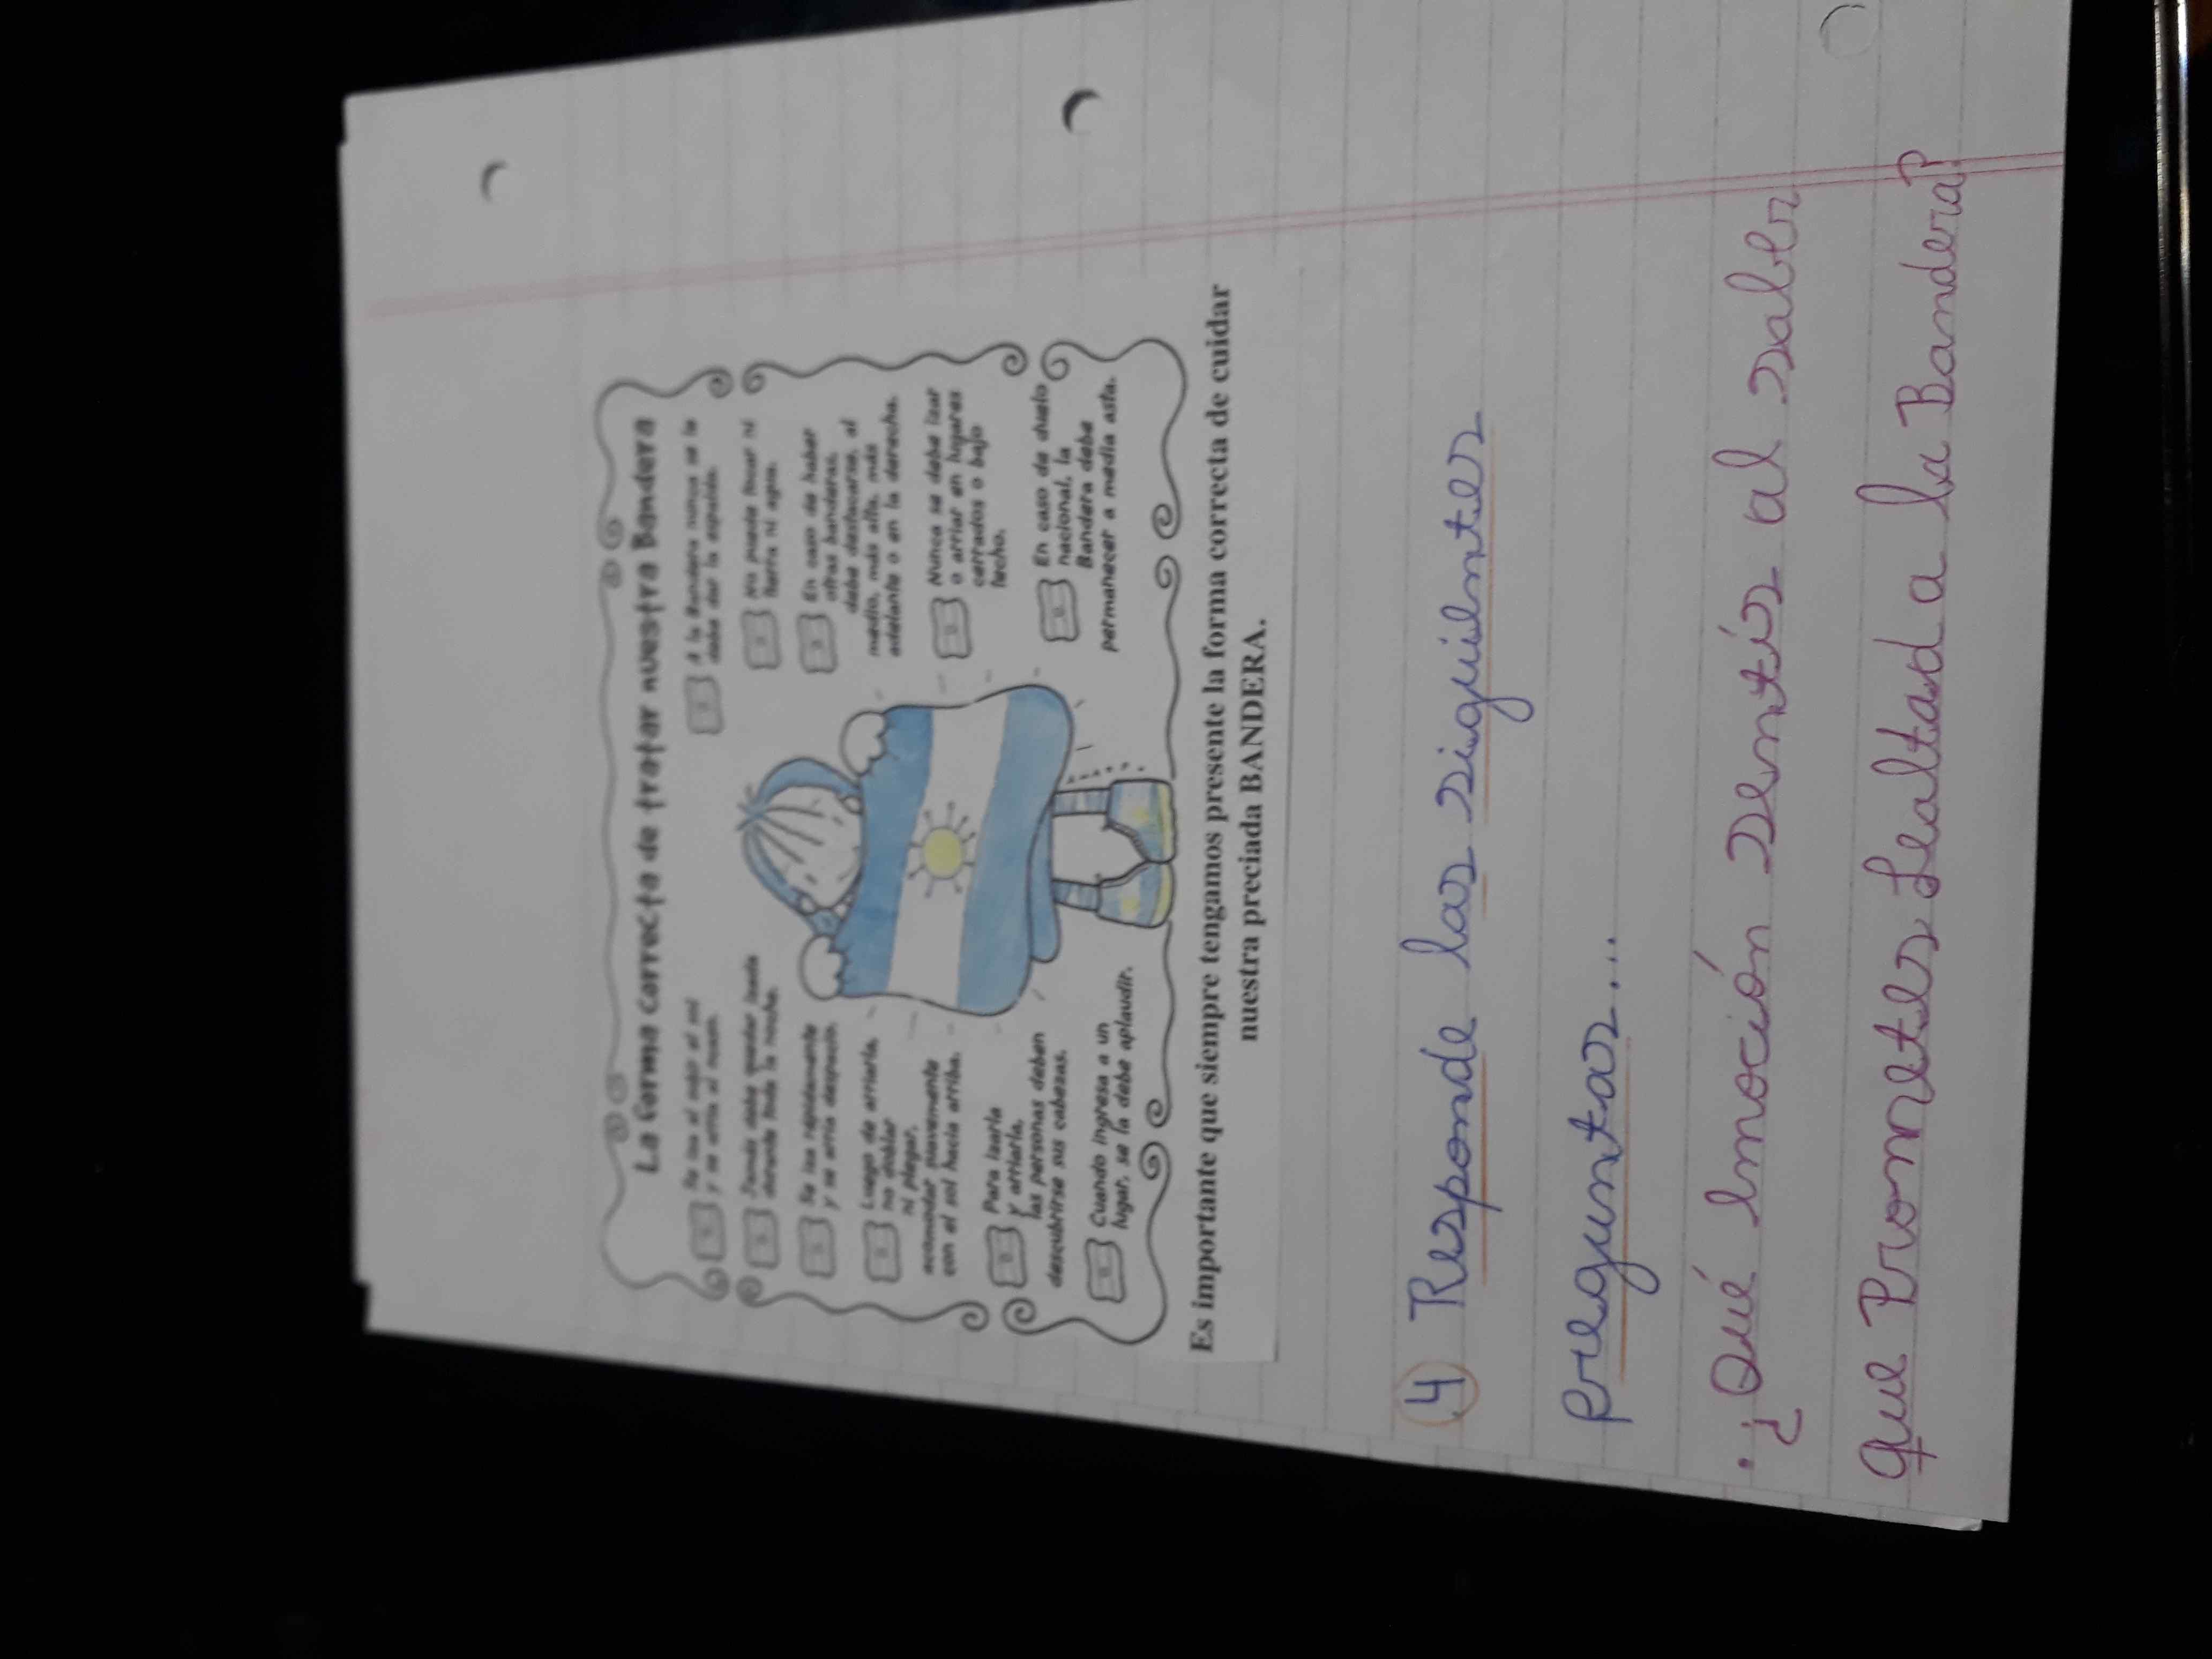 La forma correcta de tratar nuestra Bandera
Se iza al salir el sol
y se arría al
Jamás debe quedar izada
durante toda la noche.
Se iza rápidamente
y se arría despacio.
Luego de arriarla,
no doblar
ni plegar,
acomodar suavemente
con el sol hacia arriba.
Para izarla
y arriarla,
las personas deben
descubrirse sus cabezas.
Cuando ingresa a un
lugar, se la debe aplaudir.
A la Bandera nunca se le
debe dar la espalda.
No puede tocar ni
tierra ni agua.
En caso de haber
otras banderas,
debe destacarse, al
medio, más alta, más
adelante o en la derecha.
Nunca se debe izar
o arriar en lugares
cerrados o bajo
techo.
En caso de duelo
nacional, la
Bandera debe
permanecer a media asta.
Es importante que siempre tengamos presente la forma correcta de cuidar
nuestra preciada BANDERA.
4 Responde las siguientes
preguntas...
• ¿Qué emoción sentís al saber
que Prometes Lealtad a la Bandera?